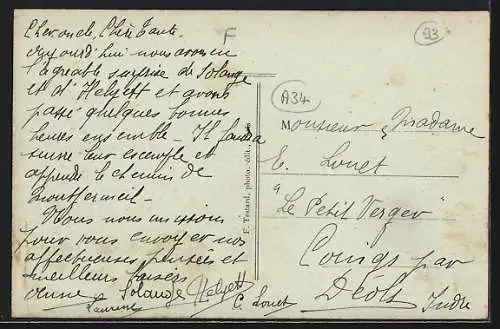 F
93
A34
Cher oncle, Chère Tante
Aujourd'hui nous avons eu
l'agréable surprise de Solange
et d'Helyett et avons
passé quelques bonnes
heures ensemble - Il faudra
suivre leur exemple et
apprendre le chemin de
Montfermeil -
Nous nous unissons
pour vous envoyer nos
affectueuses pensées et
meilleurs baisers
Solange Helyett
Laurent C. Louet
F. Testard, photo.-édit.,
Monsieur, Madame
E. Louet
"Le Petit Verger"
Coings par
Déols
Indre